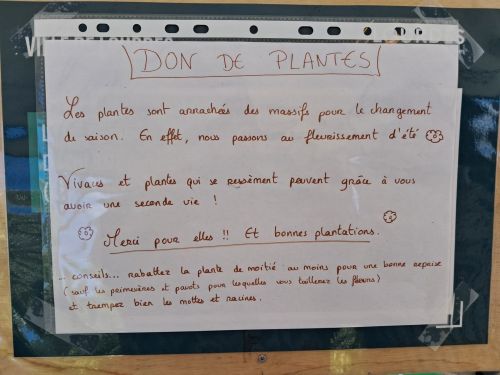 DON DE PLANTES
Les plantes sont arrachées des massifs pour le changement
de saison. En effet, nous passons au fleurissement d'été
Vivaces et plantes qui se ressèment peuvent grâce à vous
avoir une seconde vie !
Merci pour elles !! Et bonnes plantations.
- conseils... rabattez la plante de moitié au moins pour une bonne reprise
(sauf les primevères et pavots pour lesquelles vous taillerez les fleurs)
et trempez bien les mottes et racines.